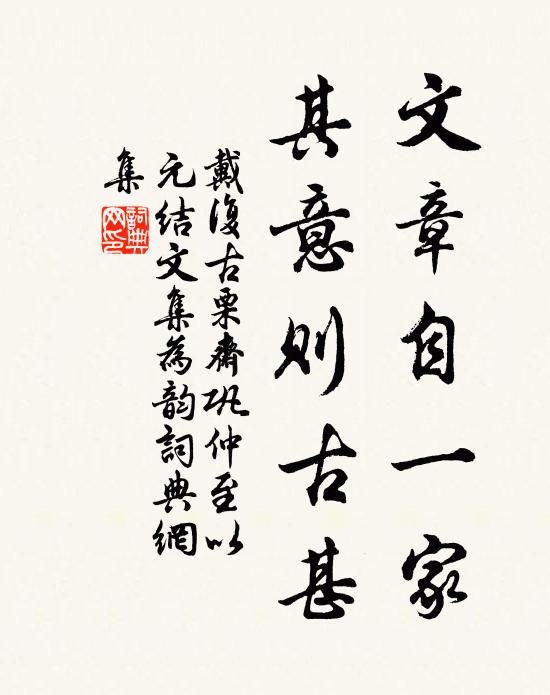 文章自一家
其意則古甚
戴復古栗齋巩仲至以
元結文集為韵詞典網
集
詞典網印